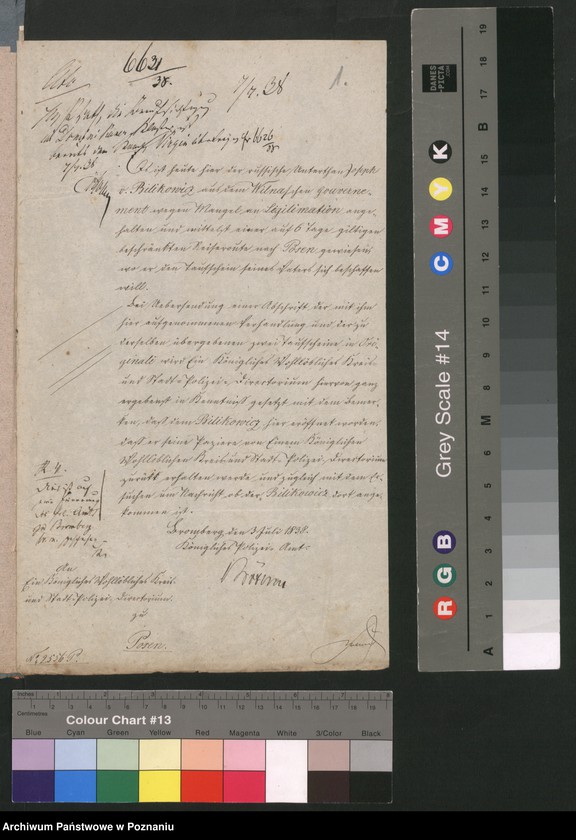 6621
38.
7/7. 38
1.
7/7. 38
Es ist heute hier der russische Unterthan Joseph
v. Bilikowicz aus dem Wilnaschen Gouverne-
ment wegen Mangel an Legitimation ange-
halten und mittelst einer auf 6 Tage gültigen
beschränkten Reiseroute nach Posen gewiesen
wo er den Taufschein seines Vaters sich beschaffen
will.
Bei Uebersendung einer Abschrift der mit ihm
hier aufgenommenen Verhandlung und der zu
derselben übergebenen zwei Taufscheine in Ori-
ginali wird Ein Königliches Wohllöbliches Kreis-
und Stadt-Polizei-Directorium hiervon ganz
ergebenst in Kenntniß gesetzt mit dem Bemer-
ken, daß dem Bilikowicz hier eröffnet worden,
daß er seine Papiere von Einem Königlichen
Wohllöblichen Kreis und Stadt-Polizei-Directorium
zurück erhalten werde und zugleich mit dem Er-
suchen um Nachricht ob der Bilikowicz dort ange-
kommen ist.
Bromberg, den 3 Juli 1838.
Königliches Polizei-Amt.
An
Ein Königliches Wohllöbliches Kreis-
und Stadt-Polizei-Directorium
zu
Posen.
DANES
-PICTA
.COM
Grey Scale #14
C M Y K
R G B
A 1 2 3 4 5 6 M 8 9 10 11 12 13 14 15 B 17 18 19
Inches 1 2 3 4 5 6 7 8
Centimetres 1 2 3 4 5 6 7 8 9 10 11 12 13 14 15 16 17 18 19
Colour Chart #13
Blue Cyan Green Yellow Red Magenta White 3/Color Black
Archiwum Państwowe w Poznaniu